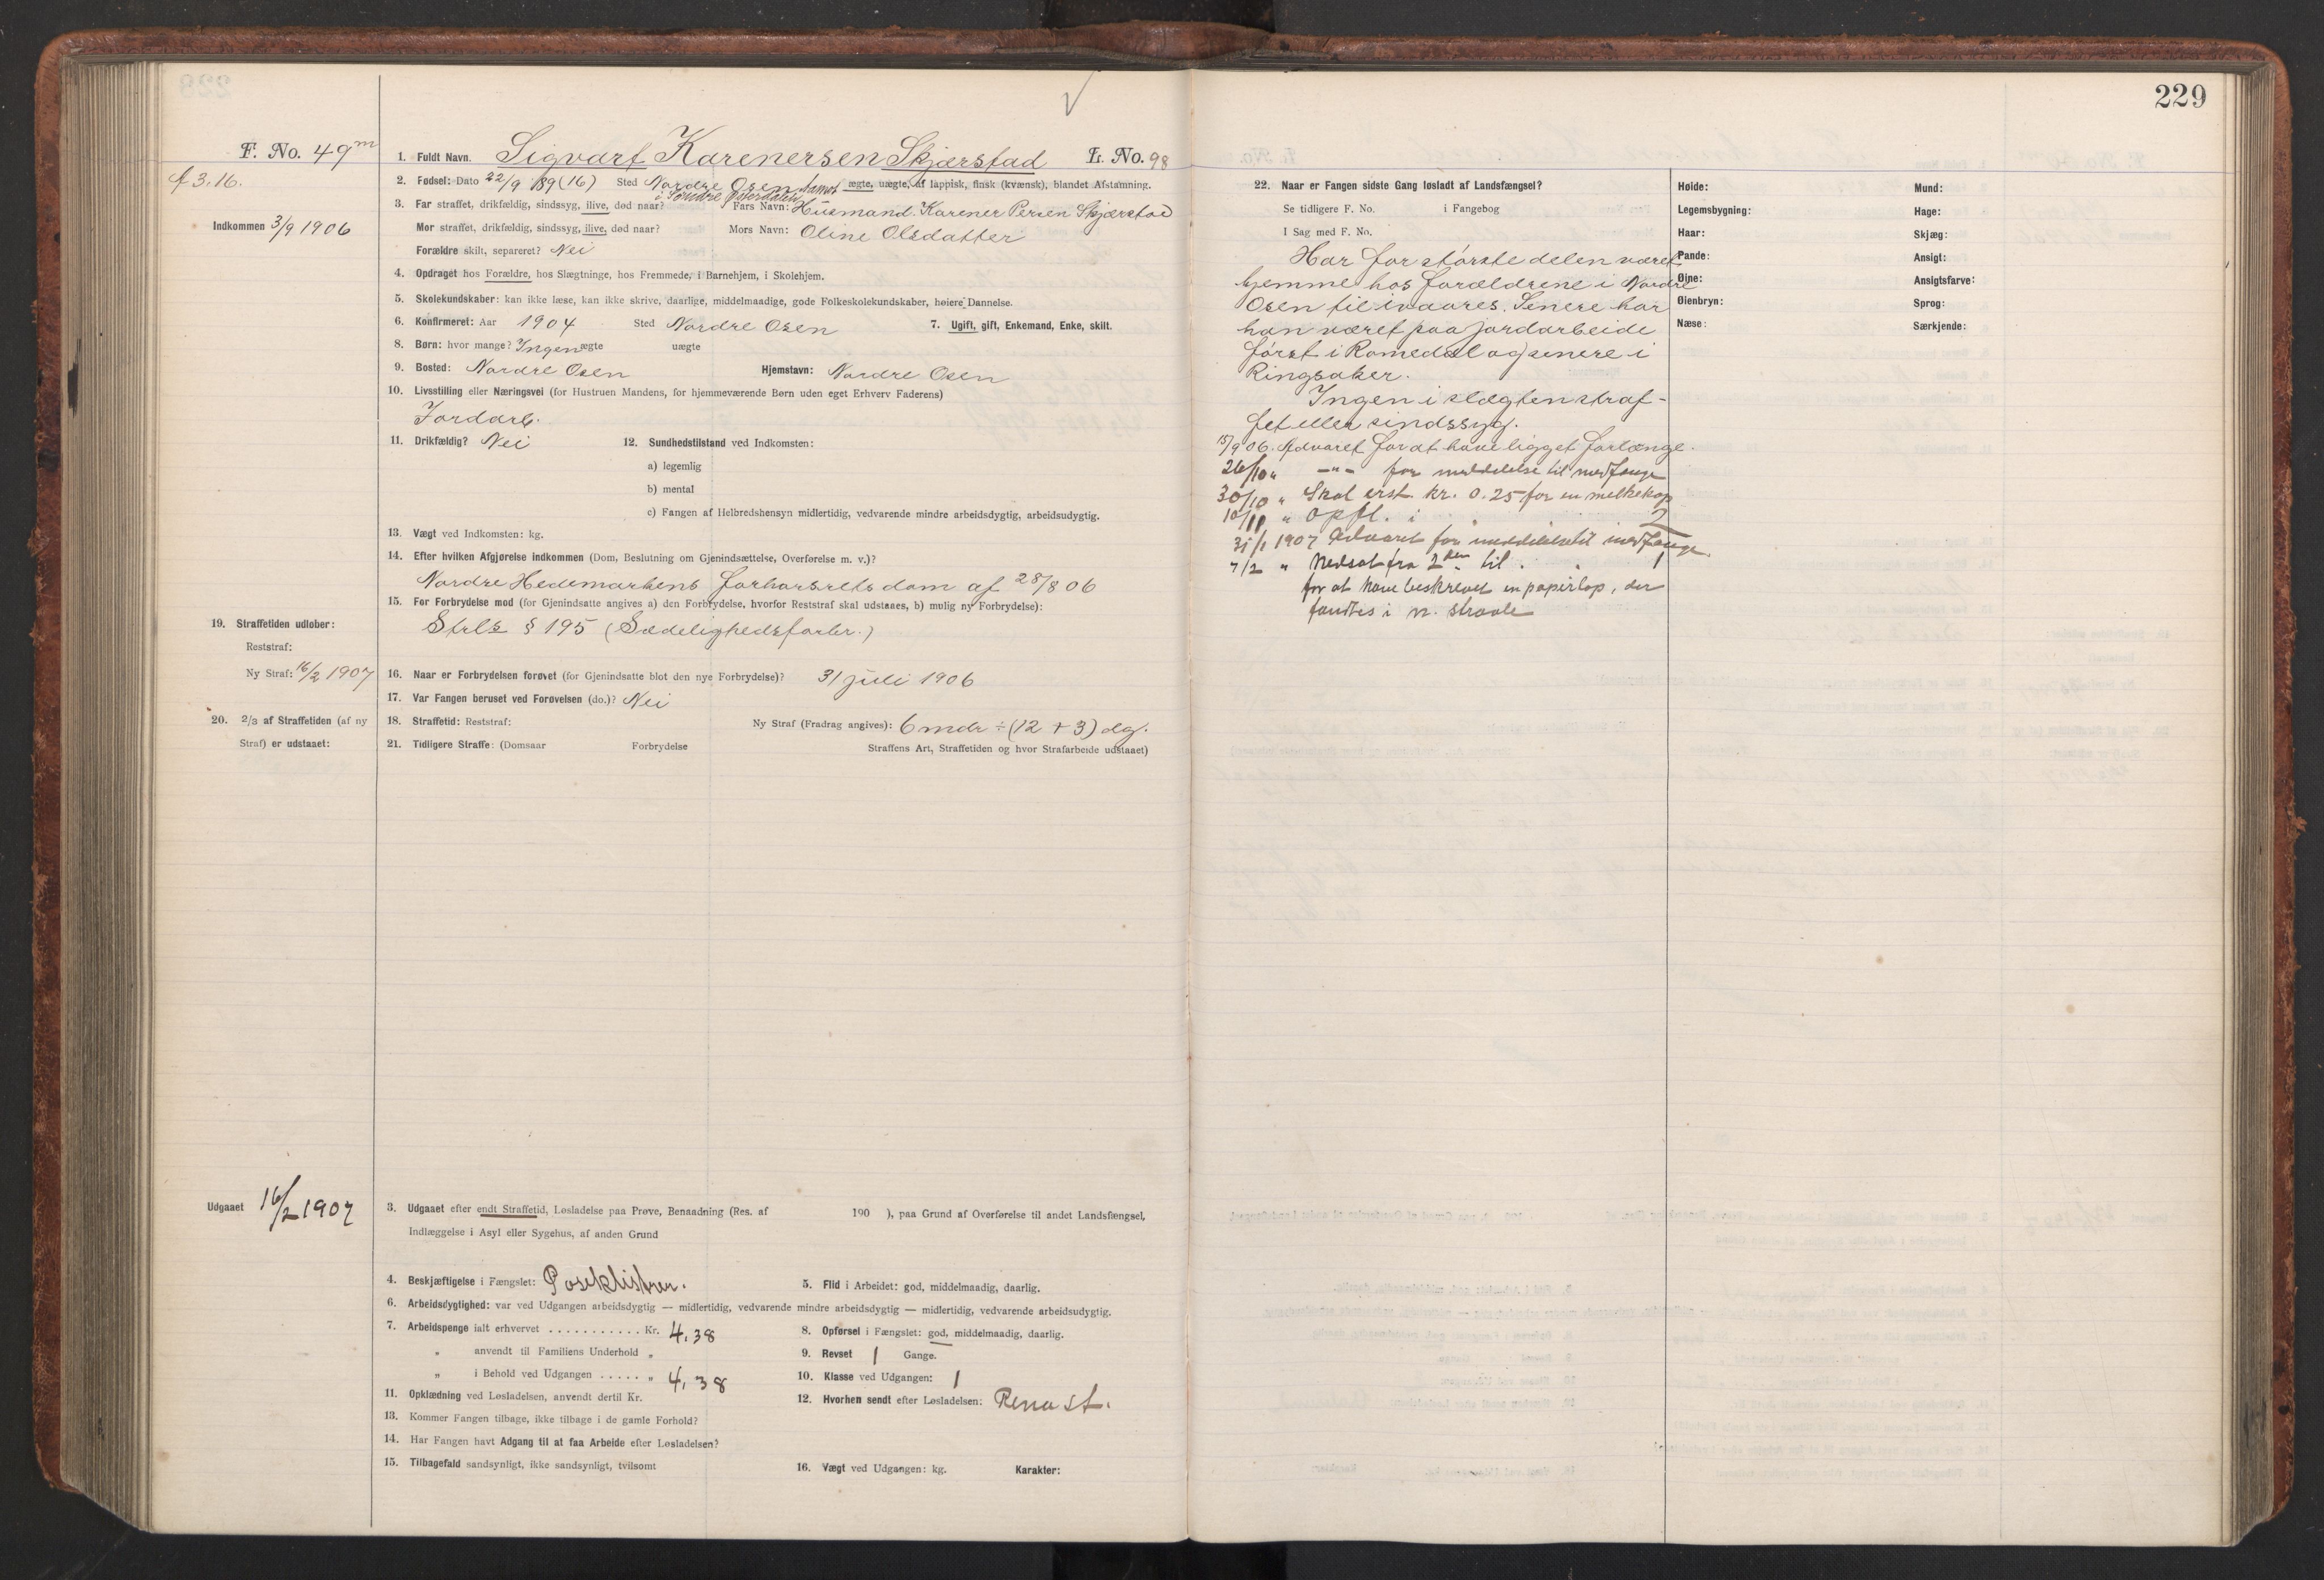 229
F. No. 49m
1. Fuldt Navn. Sigvart Karenersen Skjærstad L. No. 98
f 3.16.
2. Fødsel: Dato 22/9 189 (16) Sted Nordre Osen Aamot ægte, uægte, af lappisk, finsk (kvænsk), blandet Afstamning.
i Søndre Østerdalen
Indkommen 3/9 1906
3. Far straffet, drikfældig, sindssyg, ilive, død naar? Fars Navn: Husmand Karener Persen Skjærstad
Mor straffet, drikfældig, sindssyg, ilive, død naar? Mors Navn: Oline Olsdatter
Forældre skilt, separeret? Nei
4. Opdraget hos Forældre, hos Slægtninge, hos Fremmede, i Barnehjem, i Skolehjem.
5. Skolekundskaber: kan ikke læse, kan ikke skrive, daarlige, middelmaadige, gode Folkeskolekundskaber, høiere Dannelse.
6. Konfirmeret: Aar 1904 Sted Nordre Osen 7. Ugift, gift, Enkemand, Enke, skilt.
8. Børn: hvor mange? Ingen ægte uægte
9. Bosted: Nordre Osen Hjemstavn: Nordre Osen
10. Livsstilling eller Næringsvei (for Hustruen Mandens, for hjemmeværende Børn uden eget Erhverv Faderens)
Jordarb.
11. Drikfældig? Nei 12. Sundhedstilstand ved Indkomsten:
a) legemlig
b) mental
c) Fangen af Helbredshensyn midlertidig, vedvarende mindre arbeidsdygtig, arbeidsudygtig.
13. Vægt ved Indkomsten: kg.
14. Efter hvilken Afgjørelse indkommen (Dom, Beslutning om Gjenindsættelse, Overførelse m. v.)?
Nordre Hedemarkens forhørsrets dom af 28/8 06
15. For Forbrydelse mod (for Gjenindsatte angives a) den Forbrydelse, hvorfor Reststraf skal udstaaes, b) mulig ny Forbrydelse):
Strls § 195 (Sædelighedsforbr.)
19. Straffetiden udløber:
Reststraf:
Ny Straf: 16/2 1907
16. Naar er Forbrydelsen forøvet (for Gjenindsatte blot den nye Forbrydelse)? 31 juli 1906
17. Var Fangen beruset ved Forøvelsen (do.)? Nei
20. 2/3 af Straffetiden (af ny
Straf) er udstaaet:
18. Straffetid: Reststraf: Ny Straf (Fradrag angives): 6 mdr ÷ (12 + 3) dg.
21. Tidligere Straffe: (Domsaar Forbrydelse Straffens Art, Straffetiden og hvor Strafarbeide udstaaet)
Udgaaet 16/2 1907
3. Udgaaet efter endt Straffetid, Løsladelse paa Prøve, Benaadning (Res. af 190 ), paa Grund af Overførelse til andet Landsfængsel,
Indlæggelse i Asyl eller Sygehus, af anden Grund
4. Beskjæftigelse i Fængslet: Poseklistren. 5. Flid i Arbeidet: god, middelmaadig, daarlig.
6. Arbeidsdygtighed: var ved Udgangen arbeidsdygtig — midlertidig, vedvarende mindre arbeidsdygtig — midlertidig, vedvarende arbeidsudygtig.
7. Arbeidspenge ialt erhvervet ........... Kr. 4,38 8. Opførsel i Fængslet: god, middelmaadig, daarlig.
„ anvendt til Familiens Underhold „ 9. Revset 1 Gange.
„ i Behold ved Udgangen ..... „ 4,38 10. Klasse ved Udgangen: 1
11. Opklædning ved Løsladelsen, anvendt dertil Kr. 12. Hvorhen sendt efter Løsladelsen: Rena St.
13. Kommer Fangen tilbage, ikke tilbage i de gamle Forhold?
14. Har Fangen havt Adgang til at faa Arbeide efter Løsladelsen?
15. Tilbagefald sandsynligt, ikke sandsynligt, tvilsomt 16. Vægt ved Udgangen: kg. Karakter:
22. Naar er Fangen sidste Gang løsladt af Landsfængsel?
Se tidligere F. No. i Fangebog
I Sag med F. No.
Har for største delen været
hjemme hos forældrene i Nordre
Osen til ivaares. Senere har
han været paa jordarbeide
først i Romedal og senere i
Ringsaker.
Ingen i slægten straf-
fet eller sindssyg.
15/9 06. Advaret for at have ligget forlænge.
26/10 „ —"— for meddelelse til medfange
30/10 „ Skal erst. kr. 0.25 for en melkekop
10/11 „ Opfl. i 2
31/1 1907 Advaret for meddelelse til medfange.
7/2 „ Nedsat fra 2den til 1
for at have beskrevet en papirlap, der
fandtes i n. straale
Høide:
Legemsbygning:
Haar:
Pande:
Øine:
Øienbryn:
Næse:
Mund:
Hage:
Skjæg:
Ansigt:
Ansigtsfarve:
Sprog:
Særkjende: